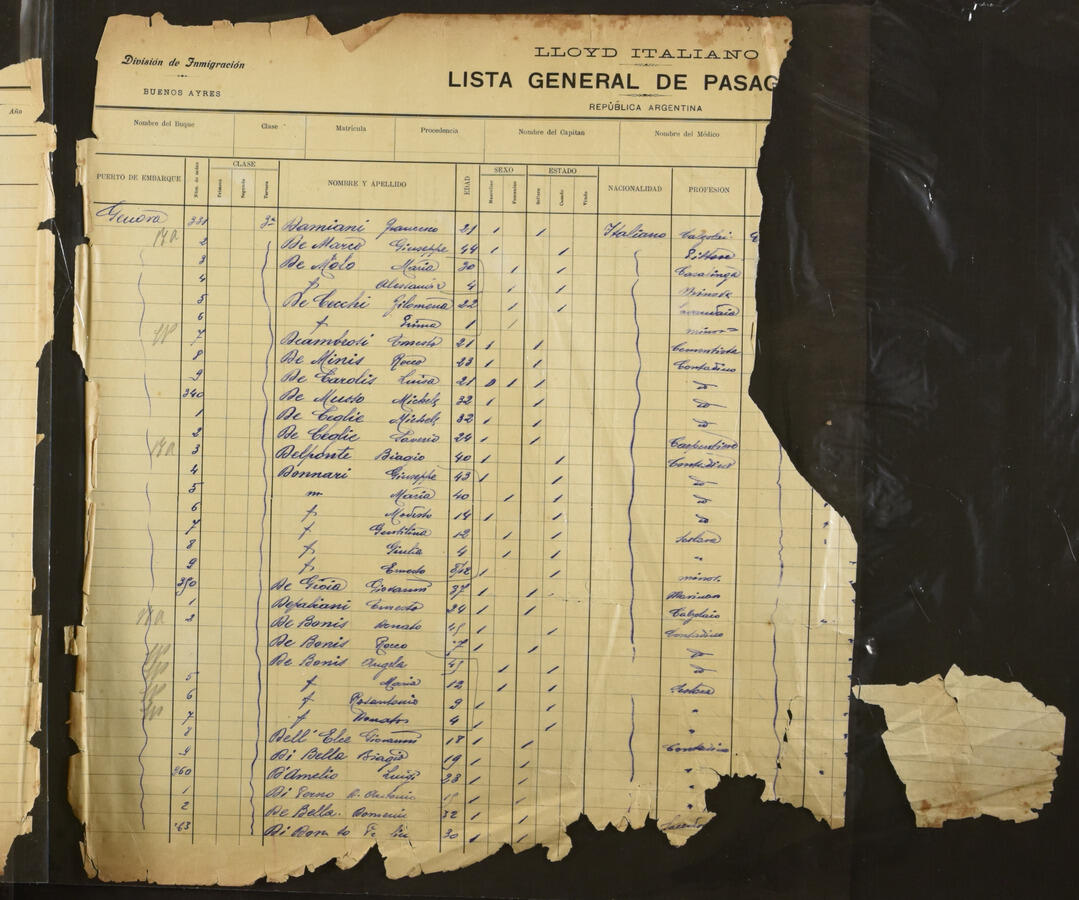 Año
División de Inmigración
BUENOS AYRES
LLOYD ITALIANO
LISTA GENERAL DE PASAG
REPÚBLICA ARGENTINA
Nombre del Buque Clase Matrícula Procedencia Nombre del Capitan Nombre del Médico
PUERTO DE EMBARQUE Núm. de orden CLASE Primera Segunda Tercera NOMBRE Y APELLIDO EDAD SEXO Masculino Femenino ESTADO Soltero Casado Viudo NACIONALIDAD PROFESION
Genova 331 3ª Damiani Francesco 21 Italiano Calzolai
2 De Marco Giuseppe 44 Pittore
3 De Molo Maria 30 Casalinga
4 f 4
5 De Cecchi Filomena 22
6 f Prima 1 minor
7 Deambrosi Ernesto 21 Cementista
8 De Minis Rocco 23 Contadino
9 De Carolis Luisa 21 do
340 De Musso Michele 32 do
1 De Ceglie Michele 32 do
2 De Ceglie Saverio 24 Carpentiere
3 Delponte Biagio 40 Contadino
4 Donnari Giuseppe 43 do
5 m Maria 40 do
6 f Modesto 14 do
7 f Gentilina 12 Sartora
8 f Giulia 4 "
9 f Ernesto 8/12 minor
350 De Gioia Giovanni 37 Marinaro
1 Ernesto 24 Calzolaio
2 De Bonis Donato 45 Contadino
De Bonis Rocco 7 do
De Bonis Angela 45 do
5 f Maria 12 Sartora
6 f Rosantonio 9 "
7 f Donato 4 "
8 Dell' Elce Giovanni 18 Contadino
9 Di Bella Biagio 19 "
360 D'Amelio Luigi 28 "
1 Di Antonio "
2 De Bella Domenic 32
363 Di 30